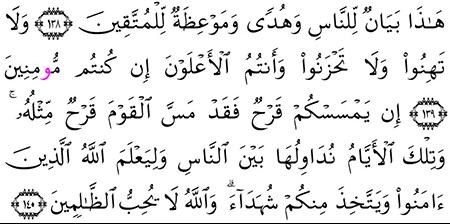 هَـٰذَا بَيَانٌ لِّلنَّاسِ وَهُدًى وَمَوْعِظَةٌ لِّلْمُتَّقِينَ ﴿١٣٨﴾ وَلَا
تَهِنُوا۟ وَلَا تَحْزَنُوا۟ وَأَنتُمُ ٱلْأَعْلَوْنَ إِن كُنتُم مُّومِنِينَ
﴿١٣٩﴾ إِن يَمْسَسْكُمْ قَرْحٌ فَقَدْ مَسَّ ٱلْقَوْمَ قَرْحٌ مِّثْلُهُۥ ۚ
وَتِلْكَ ٱلْأَيَّامُ نُدَاوِلُهَا بَيْنَ ٱلنَّاسِ وَلِيَعْلَمَ ٱللَّهُ ٱلَّذِينَ
ءَامَنُوا۟ وَيَتَّخِذَ مِنكُمْ شُهَدَآءَ ۗ وَٱللَّهُ لَا يُحِبُّ ٱلظَّـٰلِمِينَ ﴿١٤٠﴾